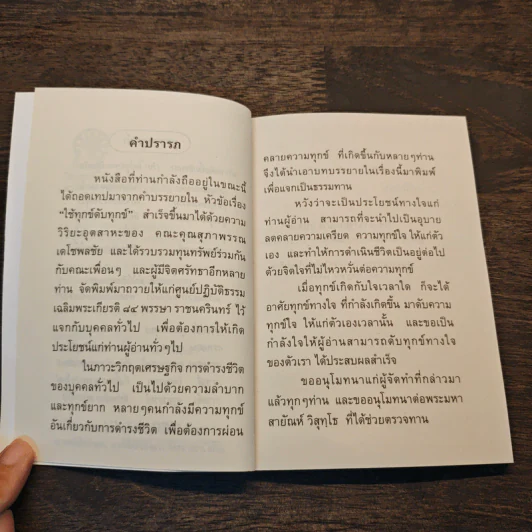 คำปรารภ
หนังสือที่ท่านกำลังถืออยู่ในขณะนี้
ได้ถอดเทปมาจากคำบรรยายใน หัวข้อเรื่อง
“ใช้ทุกข์ดับทุกข์” สำเร็จขึ้นมาได้ด้วยความ
วิริยะอุตสาหะของ คณะคุณสุภาพรรณ
เตโชพลชัย และได้รวบรวมทุนทรัพย์ร่วมกัน
กับคณะเพื่อนๆ และผู้มีจิตศรัทธาอีกหลาย
ท่าน จัดพิมพ์มาถวายให้แก่ศูนย์ปฏิบัติธรรม
เฉลิมพระเกียรติ ๘๔ พรรษา ราชนครินทร์ ไว้
แจกกับบุคคลทั่วไป เพื่อต้องการให้เกิด
ประโยชน์แก่ท่านผู้อ่านทั่วๆไป
ในภาวะวิกฤตเศรษฐกิจ การดำรงชีวิต
ของบุคคลทั่วไป เป็นไปด้วยความลำบาก
และทุกข์ยาก หลายๆคนกำลังมีความทุกข์
อันเกี่ยวกับการดำรงชีวิต เพื่อต้องการผ่อน
คลายความทุกข์ ที่เกิดขึ้นกับหลายๆท่าน
จึงได้นำเอาบทบรรยายในเรื่องนี้มาพิมพ์
เพื่อแจกเป็นธรรมทาน
หวังว่าจะเป็นประโยชน์ทางใจแก่
ท่านผู้อ่าน สามารถที่จะนำไปเป็นอุบาย
ลดคลายความเครียด ความทุกข์ใจ ให้แก่ตัว
เอง และทำให้การดำเนินชีวิตเป็นอยู่ต่อไป
ด้วยจิตใจที่ไม่ไหวหวั่นต่อความทุกข์
เมื่อทุกข์เกิดกับใจเวลาใด ก็จะได้
อาศัยทุกข์ทางใจ ที่กำลังเกิดขึ้น มาดับความ
ทุกข์ใจ ให้แก่ตัวเองเวลานั้น และขอเป็น
กำลังใจให้ผู้อ่านสามารถดับทุกข์ทางใจ
ของตัวเรา ได้ประสบผลสำเร็จ
ขออนุโมทนาแก่ผู้จัดทำที่กล่าวมา
แล้วทุกๆท่าน และขออนุโมทนาต่อพระมหา
สายัณห์ วิสุทฺโธ ที่ได้ช่วยตรวจทาน